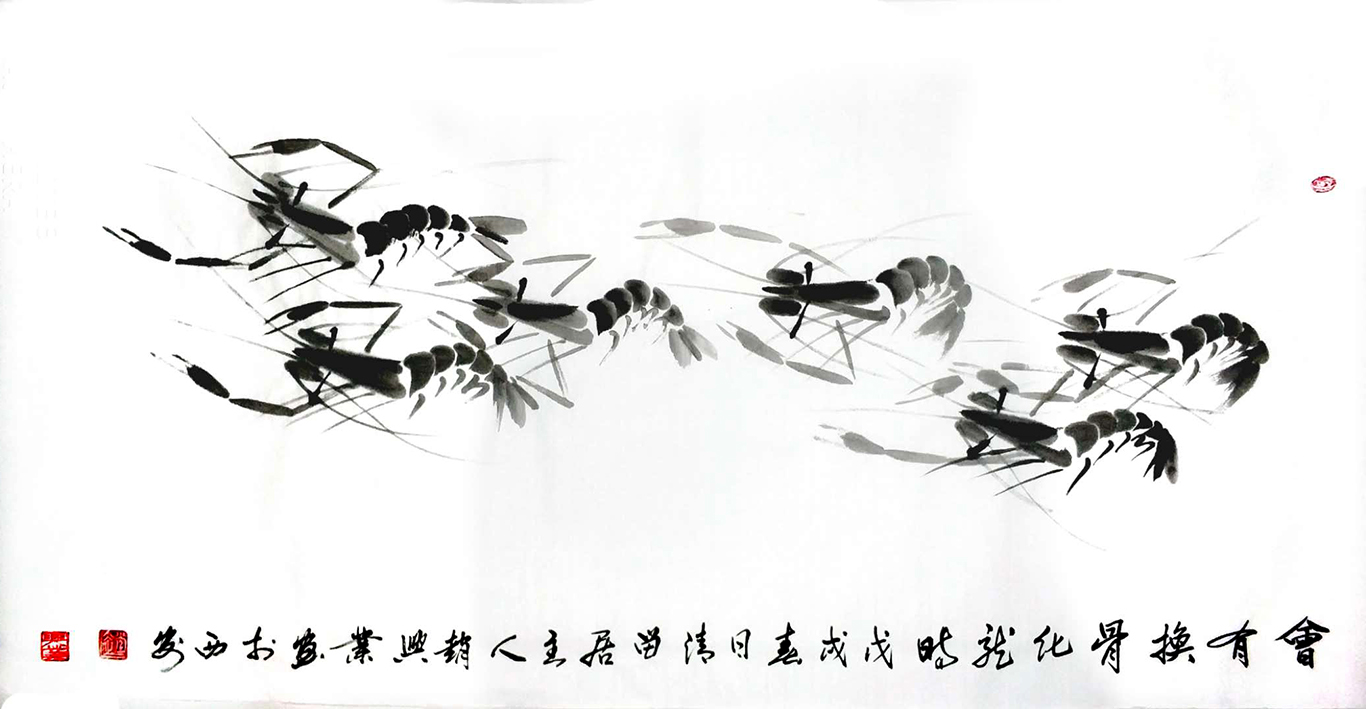 會有換骨化龍時戊戌春日清留居主人趙興業畫於西安